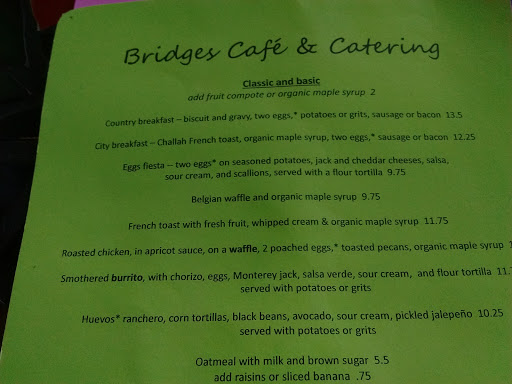 Bridges Café & Catering
Classic and basic
add fruit compote or organic maple syrup 2
Country breakfast – biscuit and gravy, two eggs,* potatoes or grits, sausage or bacon 13.5
City breakfast – Challah French toast, organic maple syrup, two eggs,* sausage or bacon 12.25
Eggs fiesta – two eggs* on seasoned potatoes, jack and cheddar cheeses, salsa,
sour cream, and scallions, served with a flour tortilla 9.75
Belgian waffle and organic maple syrup 9.75
French toast with fresh fruit, whipped cream & organic maple syrup 11.75
Roasted chicken, in apricot sauce, on a waffle, 2 poached eggs,* toasted pecans, organic maple syrup
Smothered burrito, with chorizo, eggs, Monterey jack, salsa verde, sour cream, and flour tortilla 11.
served with potatoes or grits
Huevos* ranchero, corn tortillas, black beans, avocado, sour cream, pickled jalepeño 10.25
served with potatoes or grits
Oatmeal with milk and brown sugar 5.5
add raisins or sliced banana .75